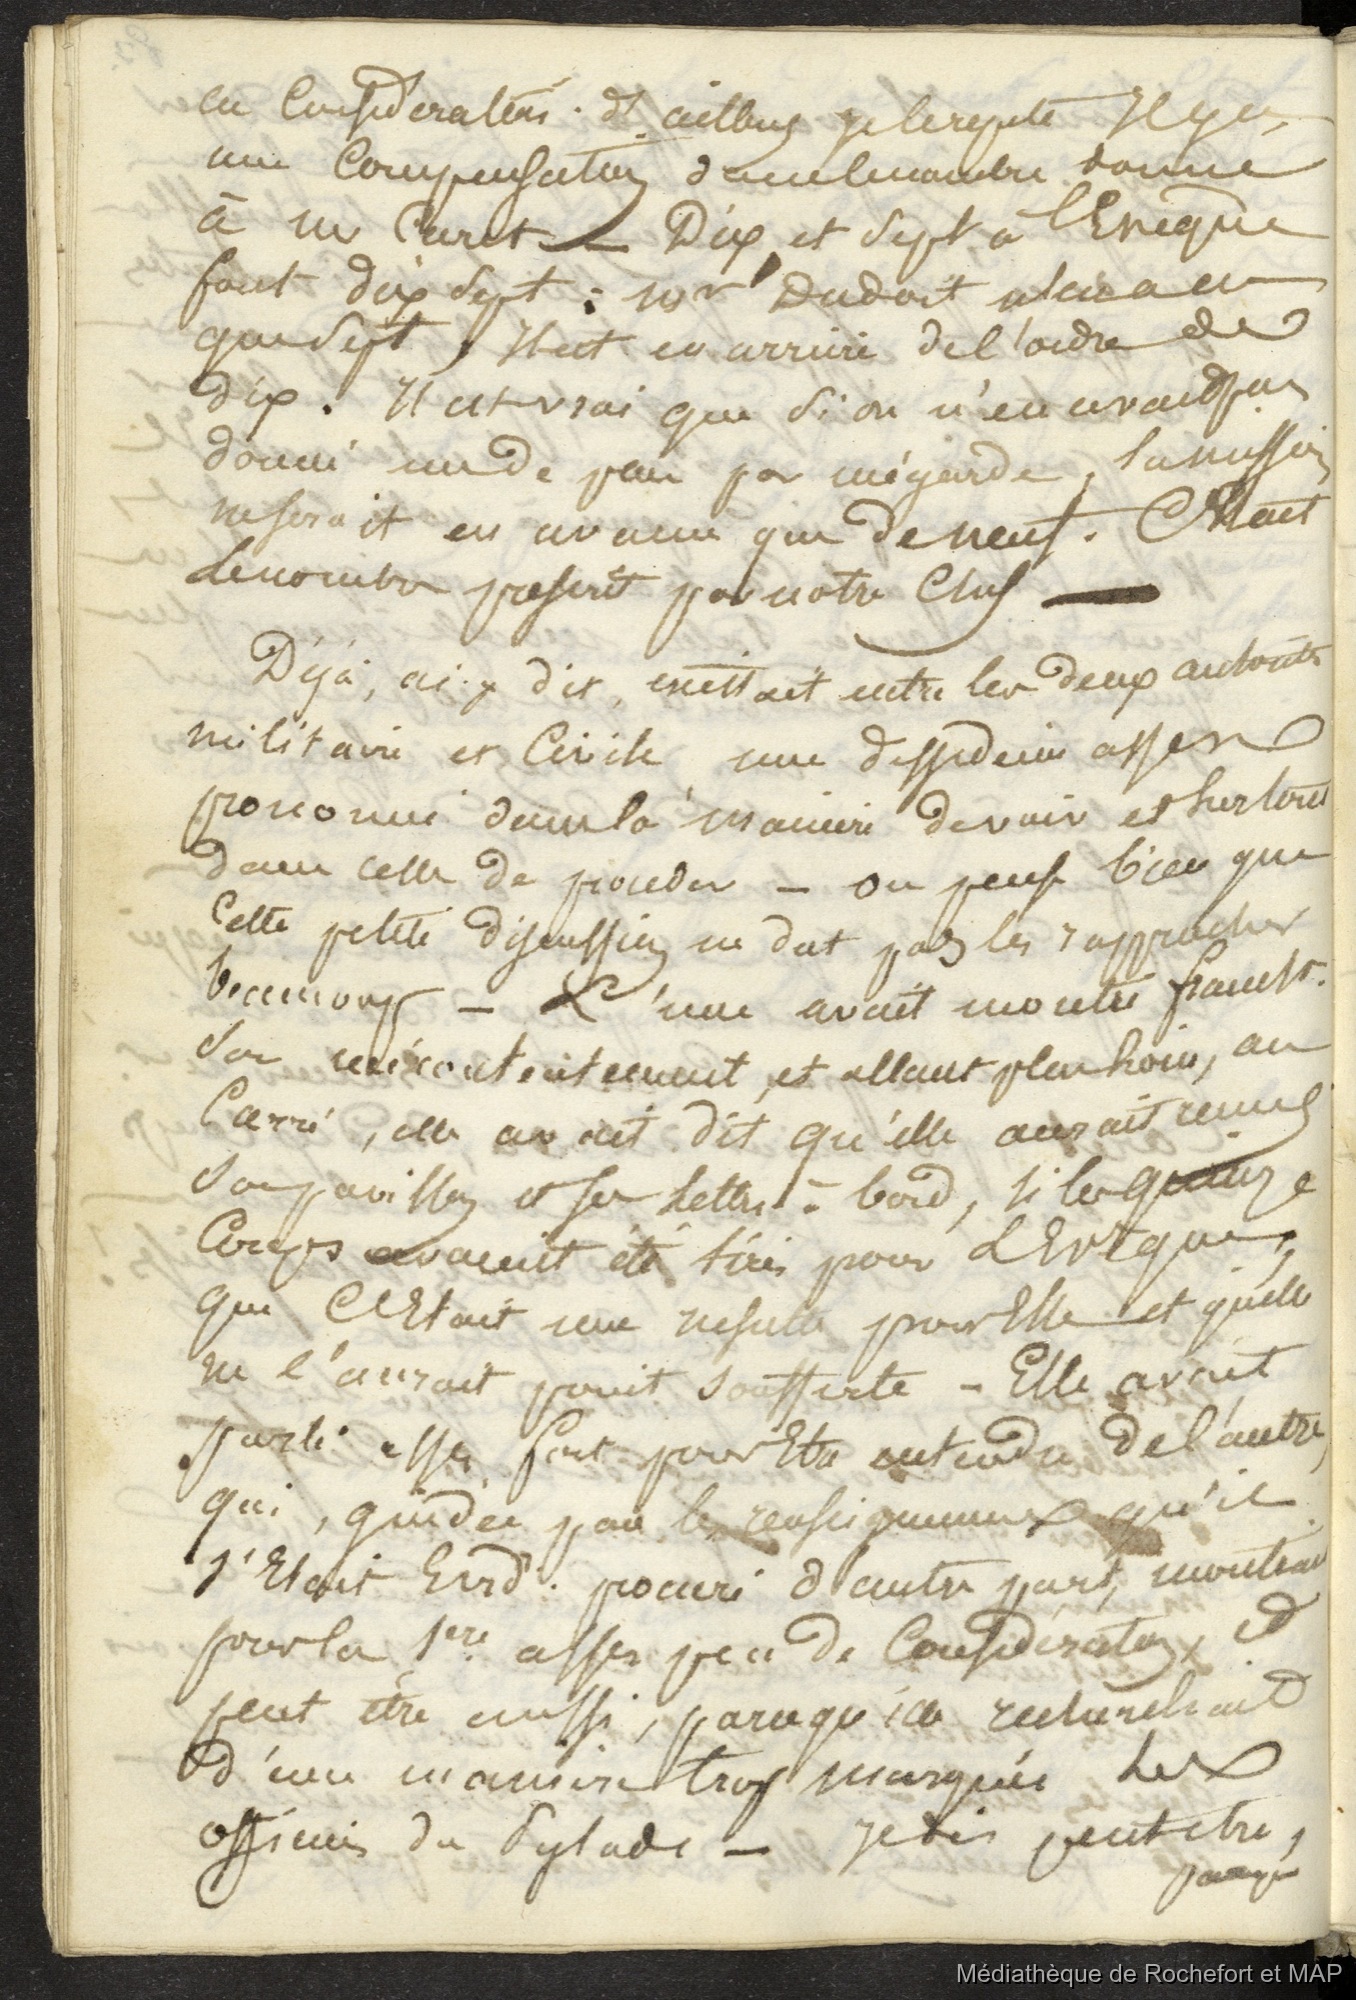 en Considération. d'ailleurs je le repete Il y eu
une Compensation dans le nombre donné
à Mr Caret — Dix et Sept à l'Evêque
font dix Sept : Mr Dudoit n'en a eu
que Sept, Il est en arrière de l'ordre de
dix. Il est vrai que si on n'en avait pas
donné un de plus par mégarde, la mission
ne serait en avance que de neuf. C'Etait
le nombre prescrit par notre Chef —
Déjà, ai-je dit, existait entre les deux autorités
militaire et Civile une dissidence assez
prononcé dans la manière de voir et surtout
dans celle de procéder — on pense bien que
Cette petite discussion ne dut pas les rapprocher
beaucoup — L'une avait montré francht.
Son mécontentement, et allant plus loin, au
Carré, elle avait dit qu'elle aurait remis
Son pavillon et ses lettres à bord, si les quinze
Coups avaient été tirés pour L'Evêque,
que C'Etait une insulte pour Elle et qu'elle
ne l'aurait point soufferte — Elle avait
parlé assez fort pour Etre entendu de l'autre,
qui, guidée par les renseignements qu'il
s'Etait procuré d'autre part, montrait
pour la 1ere assez peu de Considération, et
peut être aussi, parcequ'il recherchait
d'une manière trop marquée les
officiers du Pylade — je dis peut etre,
parcequ